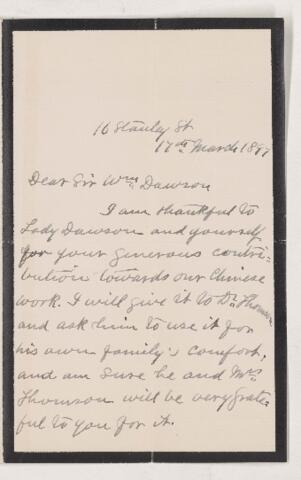 16 Stanley St
17th March 1897
Dear Sir Wm Dawson
I am thankful to
Lady Dawson and yourself
for your generous contri=
bution towards our Chinese
work. I will give it to Dr. Thomson
and ask him to use it for
his own family's comfort,
and am sure he and Mrs
Thomson will be very grate=
ful to you for it.